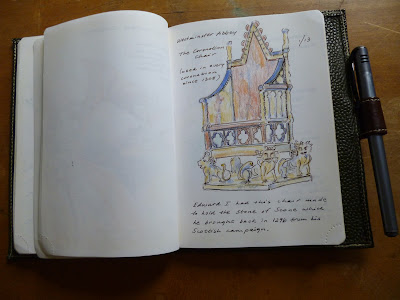 Westminster Abbey
The Coronation
Chair
(used in every
coronation
since 1308)
Edward I had this chair made
to hold the Stone of Scone which
he brought back in 1296 from his
Scottish campaign.